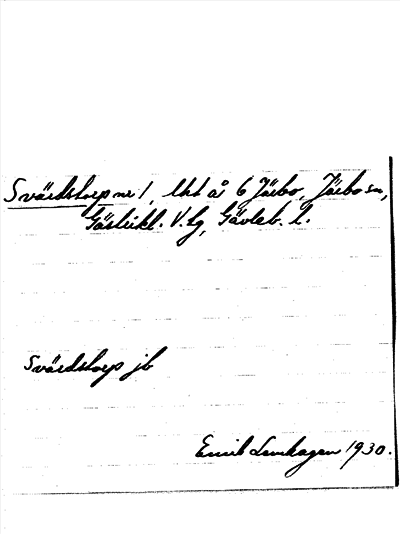 Svärdstorp nr 1, lht å 6 Järbo, Järbo sn,
Gästrikl. V. tg, Gävleb. l.
Svärdstorp jb
Emil Lenhagen 1930.